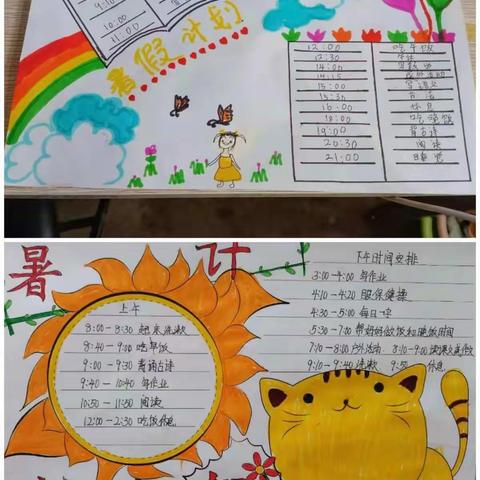 9:10
10:00
11:00
暑假计划
12:00 吃午饭
12:30 午休
14:00
14:15
15:00
15:30
16:00 休息
18:00 吃晚饭
19:00
20:30 阅读
21:00 睡觉
暑
计
上午
8:00-8:30 起床洗漱
8:40-9:00 吃早饭
9:00-9:30 背诵古诗
9:40-10:40 写作业
10:50-11:50 阅读
12:00-2:30 吃饭休息
下午时间安排
3:00-4:00 写作业
4:10-4:20 眼保健操
4:30-5:00 每日一字
5:30-7:00 帮妈妈做饭和晚饭时间
7:10-8:00 户外活动 8:10-9:00
9:10-9:40 洗漱 9:50 休息